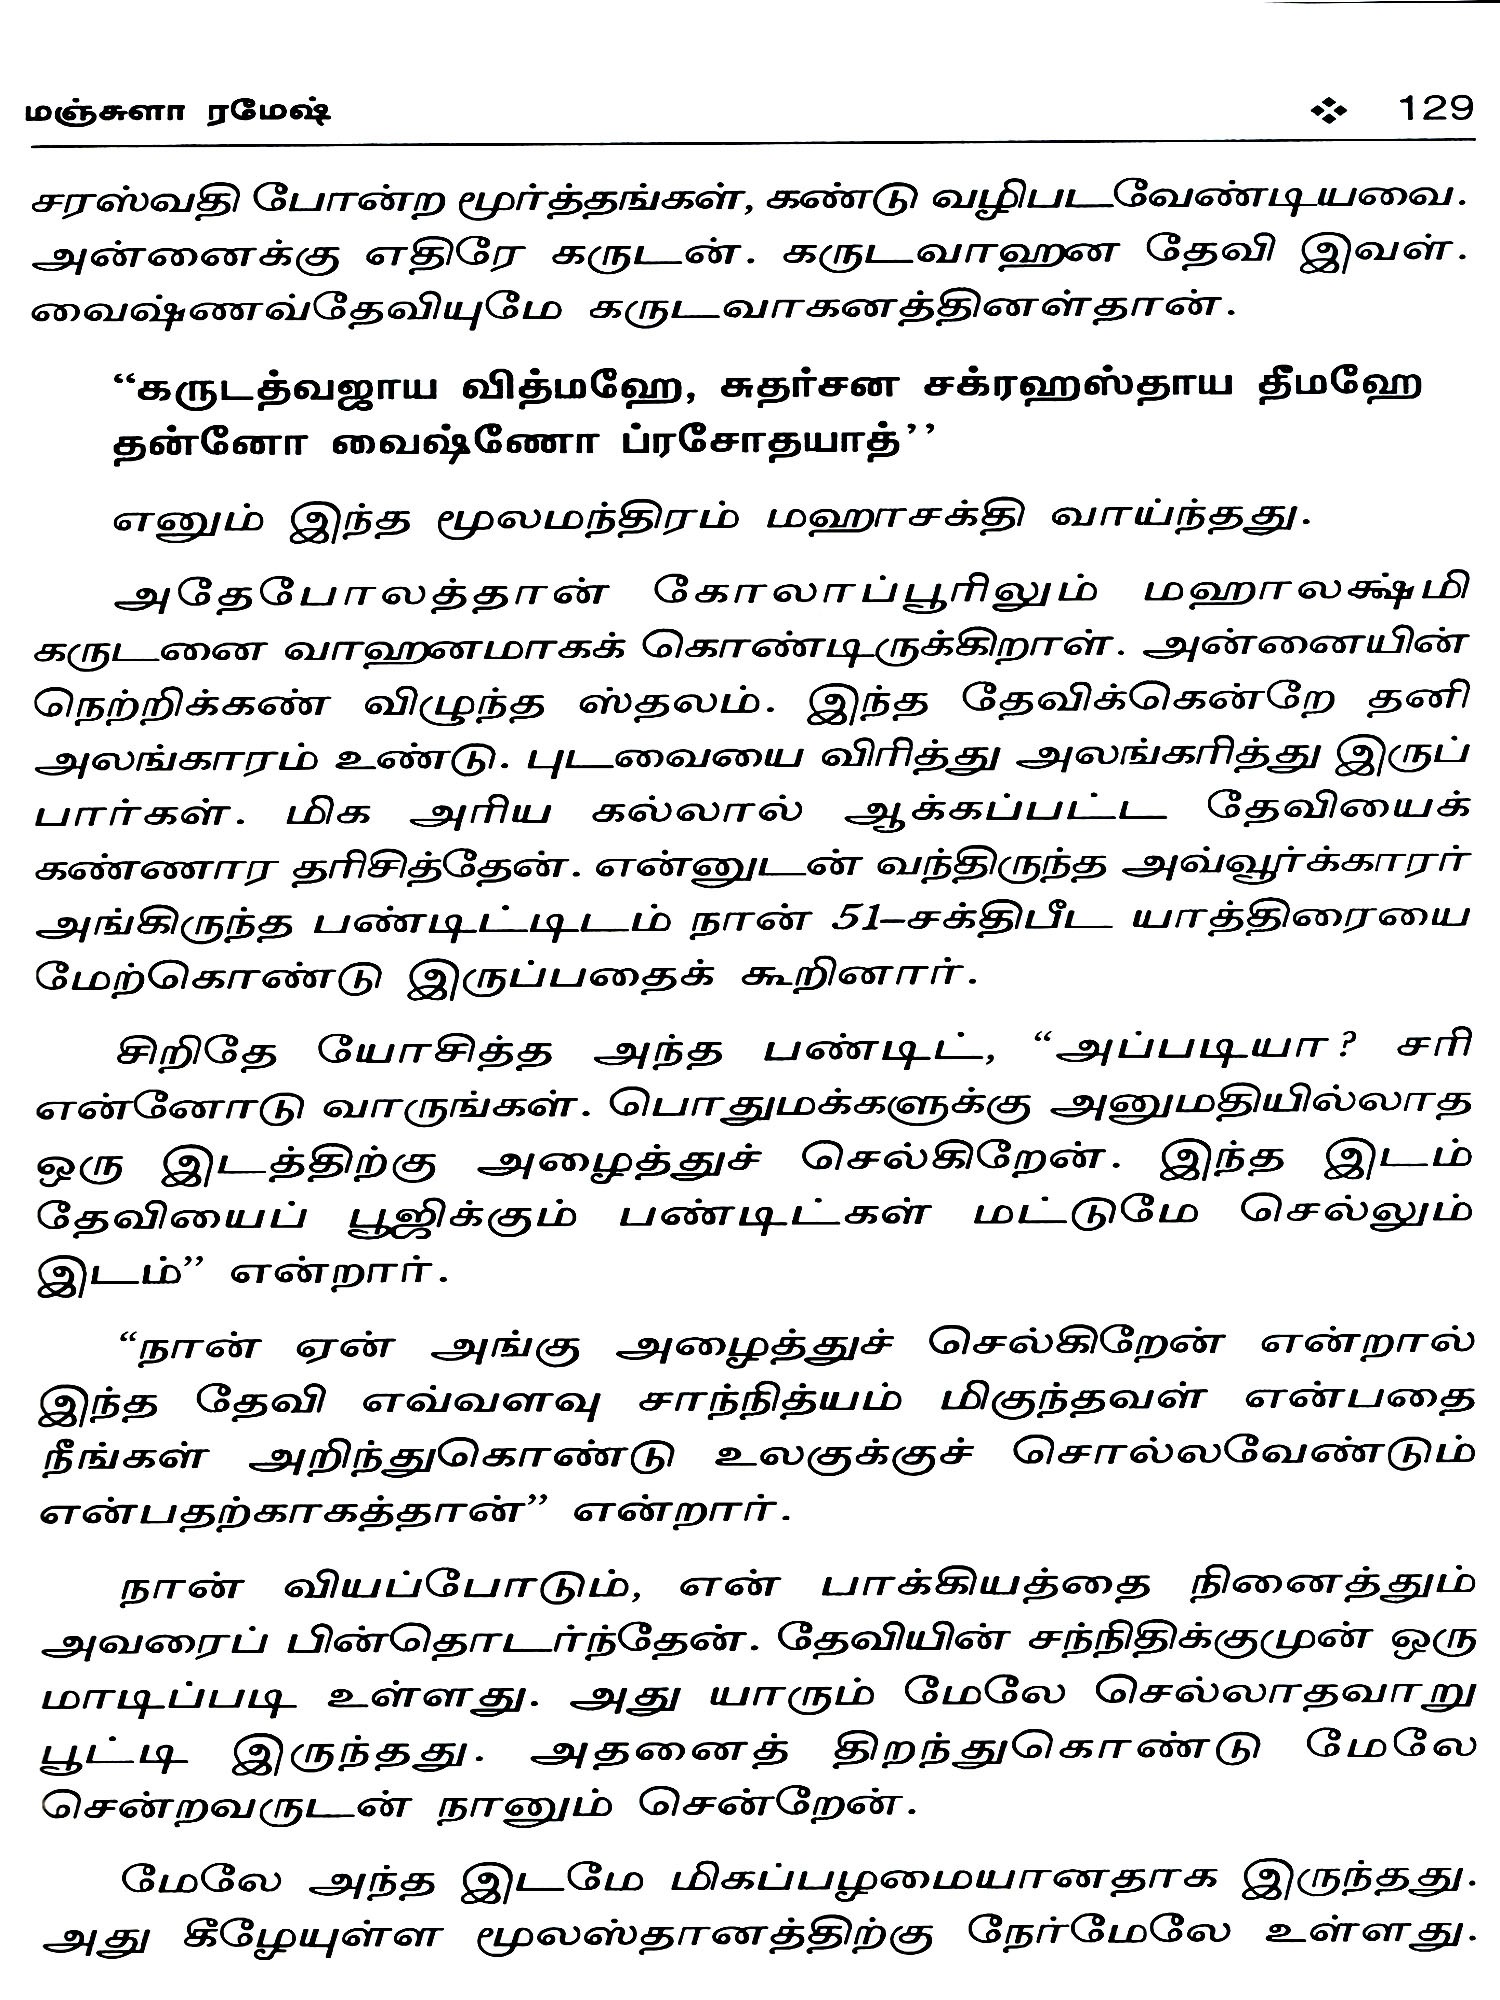 மஞ்சுளா ரமேஷ் ❖ 129
சரஸ்வதி போன்ற மூர்த்தங்கள், கண்டு வழிபடவேண்டியவை.
அன்னைக்கு எதிரே கருடன். கருடவாஹன தேவி இவள்.
வைஷ்ணவ்தேவியுமே கருடவாகனத்தினள்தான்.
“கருடத்வஜாய வித்மஹே, சுதர்சன சக்ரஹஸ்தாய தீமஹே
தன்னோ வைஷ்ணோ ப்ரசோதயாத்’’
எனும் இந்த மூலமந்திரம் மஹாசக்தி வாய்ந்தது.
அதேபோலத்தான் கோலாப்பூரிலும் மஹாலக்ஷ்மி
கருடனை வாஹனமாகக் கொண்டிருக்கிறாள். அன்னையின்
நெற்றிக்கண் விழுந்த ஸ்தலம். இந்த தேவிக்கென்றே தனி
அலங்காரம் உண்டு. புடவையை விரித்து அலங்கரித்து இருப்
பார்கள். மிக அரிய கல்லால் ஆக்கப்பட்ட தேவியைக்
கண்ணார தரிசித்தேன். என்னுடன் வந்திருந்த அவ்வூர்க்காரர்
அங்கிருந்த பண்டிட்டிடம் நான் 51–சக்திபீட யாத்திரையை
மேற்கொண்டு இருப்பதைக் கூறினார்.
சிறிதே யோசித்த அந்த பண்டிட், “அப்படியா? சரி
என்னோடு வாருங்கள். பொதுமக்களுக்கு அனுமதியில்லாத
ஒரு இடத்திற்கு அழைத்துச் செல்கிறேன். இந்த இடம்
தேவியைப் பூஜிக்கும் பண்டிட்கள் மட்டுமே செல்லும்
இடம்” என்றார்.
“நான் ஏன் அங்கு அழைத்துச் செல்கிறேன் என்றால்
இந்த தேவி எவ்வளவு சாந்நித்யம் மிகுந்தவள் என்பதை
நீங்கள் அறிந்துகொண்டு உலகுக்குச் சொல்லவேண்டும்
என்பதற்காகத்தான்” என்றார்.
நான் வியப்போடும், என் பாக்கியத்தை நினைத்தும்
அவரைப் பின்தொடர்ந்தேன். தேவியின் சந்நிதிக்குமுன் ஒரு
மாடிப்படி உள்ளது. அது யாரும் மேலே செல்லாதவாறு
பூட்டி இருந்தது. அதனைத் திறந்துகொண்டு மேலே
சென்றவருடன் நானும் சென்றேன்.
மேலே அந்த இடமே மிகப்பழமையானதாக இருந்தது.
அது கீழேயுள்ள மூலஸ்தானத்திற்கு நேர்மேலே உள்ளது.